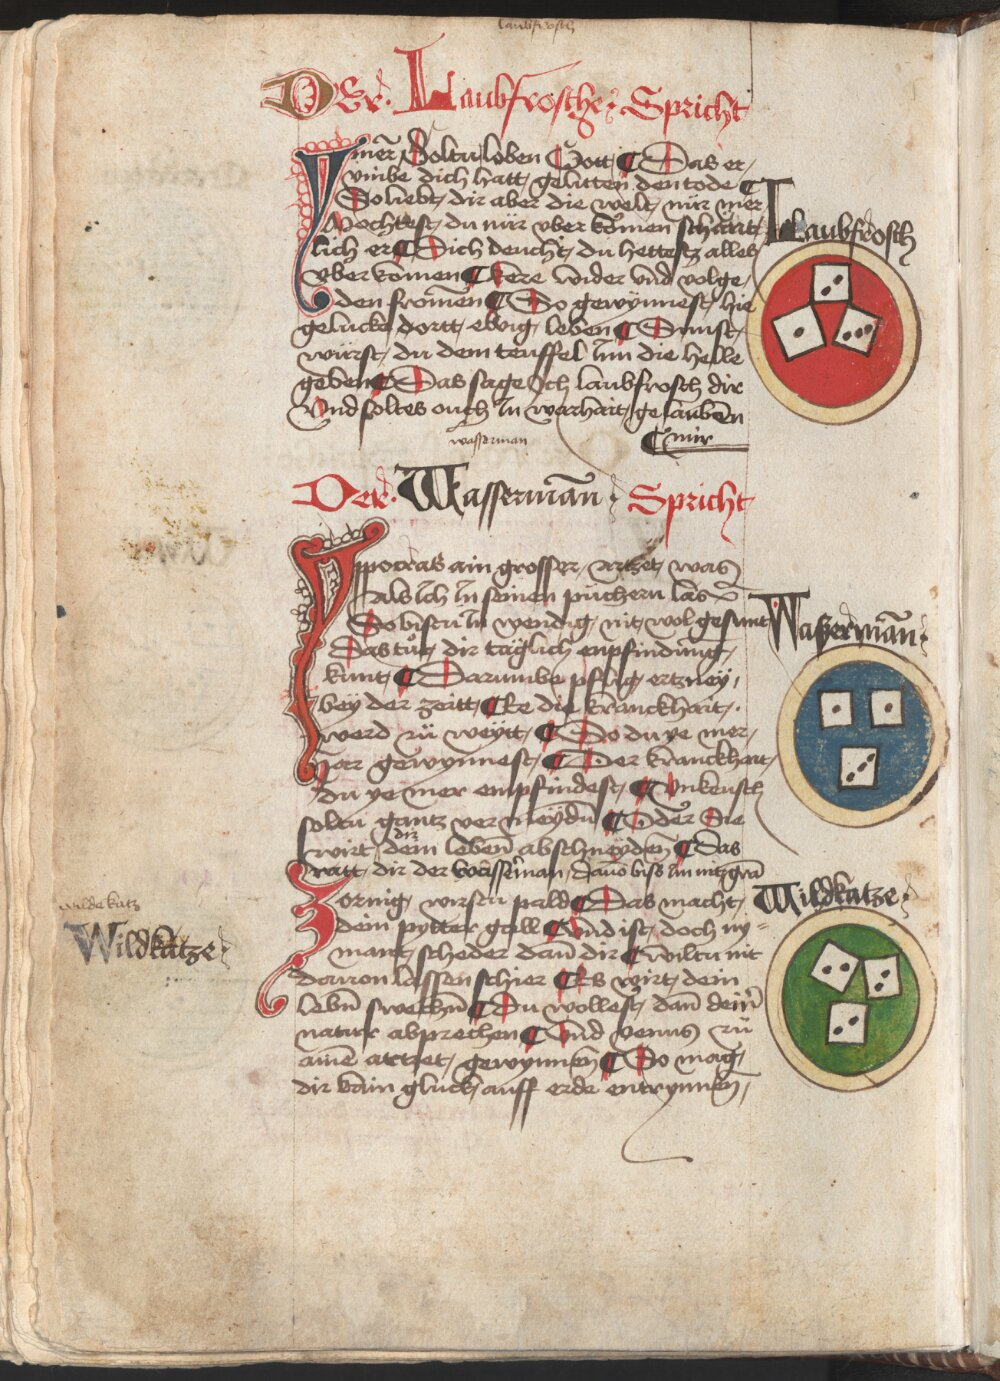 laubfrosch
Der Laubfrosche Spricht
Ymer Soltu loben Gott Das er
vmbe dich hatt gelitten den tode
So liebt dir aber die welt nür mer
Möchtest du nür vber komen schantt
lich er Dich deucht du hettest alles
vber komen kere wider vnd volge
den fromen So gewynnest hie
gelucke dortt ewig leben Sunst
würst du dem teuffel Inn die helle
geben Das sage Ich laubfrosch dir
Vnd soltes ouch In warhait gelauben
mir
Laubfrosch
wasserman
Der Wasserman Spricht
Ypocras ain grosser artzet was
als Ich In seinen püchern las
So bistu In wendig nit wol gesunt
Das tüt dir täglich enpfindung
kunt Darumbe pflig ertzney
bey der zeitt Ee die kranckhait
werd zü weytt So du ye mer
Jar gewynnest Der kranckhait
du ye mer empfindest Vnkeusch
soltu gantz vermeydn Oder Sie
wirt dir dein leben abschneyden Das
ratt dir der wasserman dauo biss Im nit gram
Wasserman
Zornig wirstu pald Das macht
dein pytter gall Vnd ist doch ny-
mant scheder dan dir wiltu nit
dauon lassen schier Es wirt dein
lebn swechn Du wollest dan deinr
natur absprechen Vnd venus zü
aine artzet gewynnen So mag
dir kain gluck auff erde entrynnen
Wildkatze
wilde katz
Wildkatze